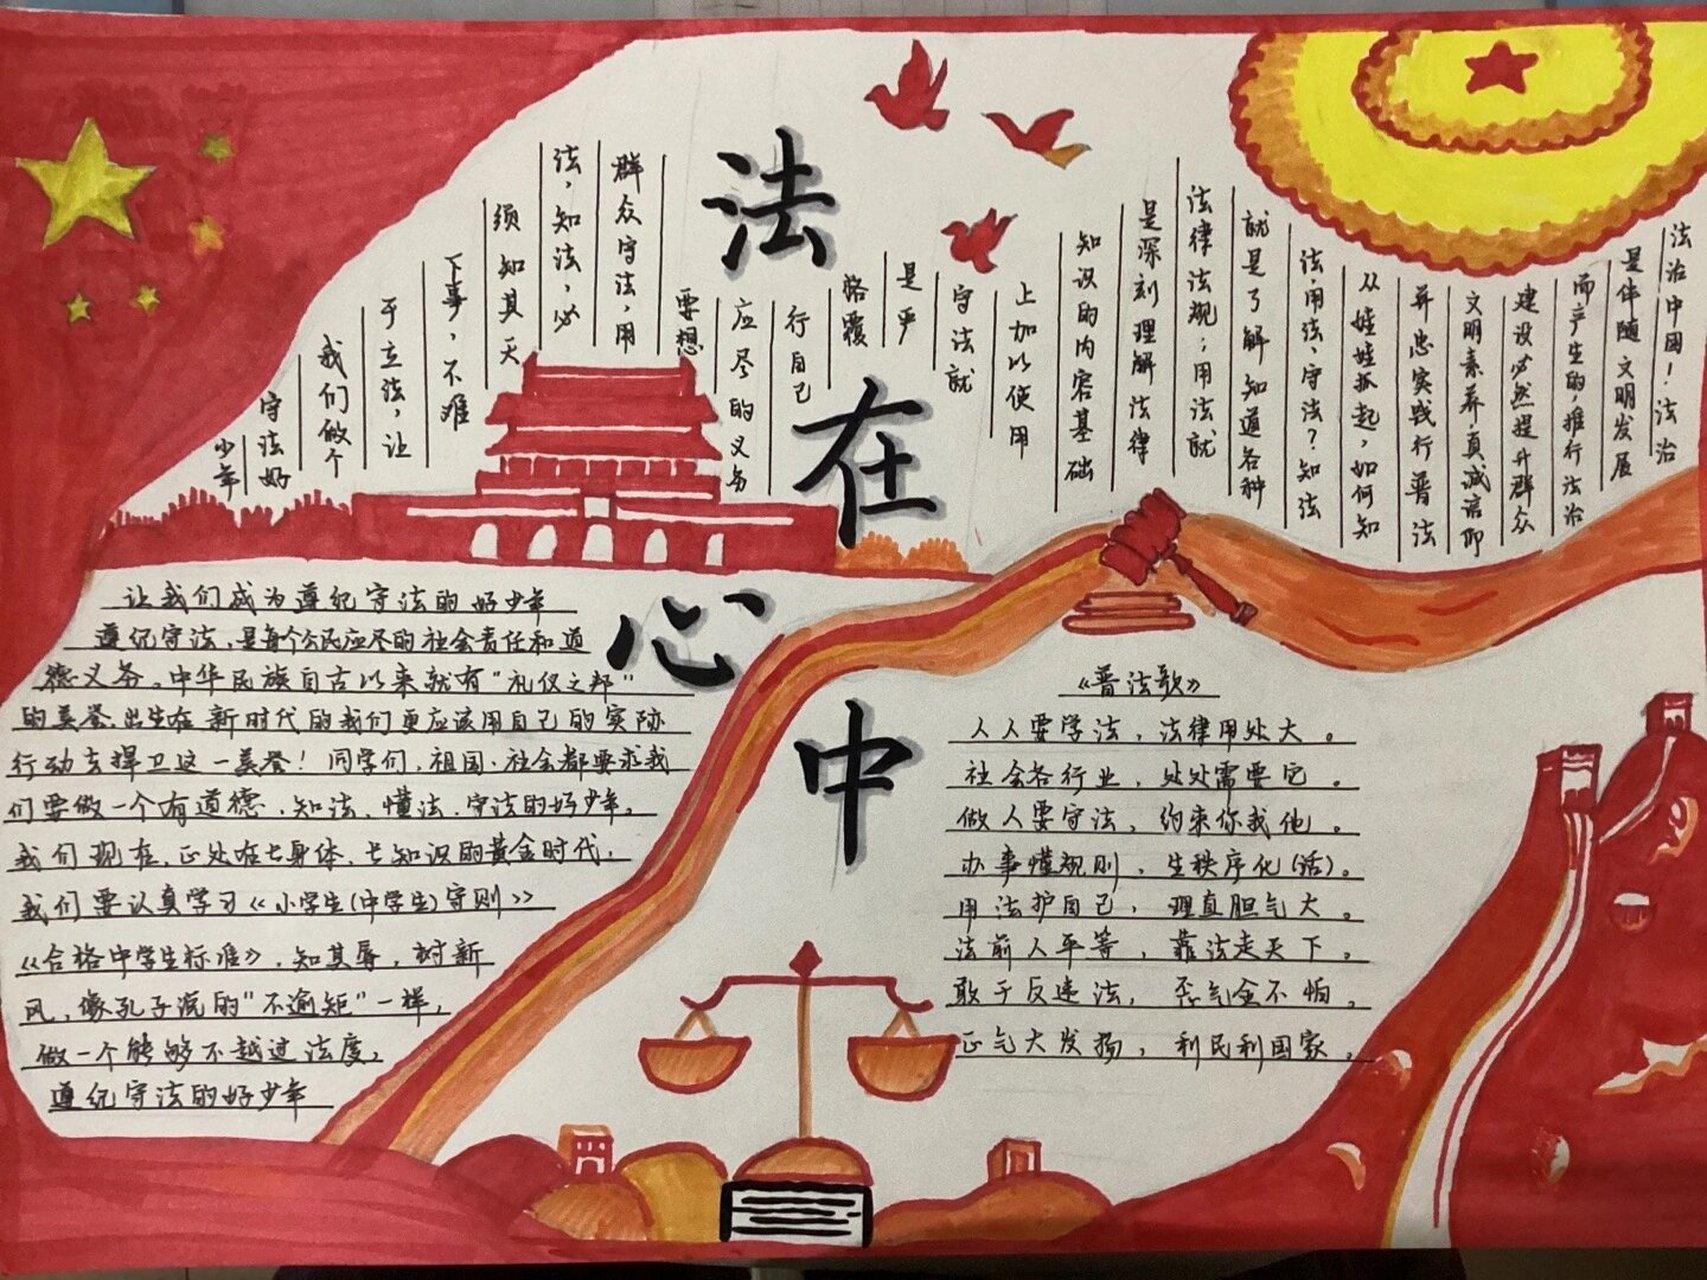 法在心中
法治中国！法治
是伴随文明发展
而产生的，推行法治
建设必然提升群众
文明素养，真诚信仰
并忠实践行普法
从娃娃抓起，如何知
法、用法、守法？知法
就是了解知道各种
法律法规；用法就
是深刻理解法律
知识的内容基础
上加以使用
守法就
是严
恪覆
行自己
应尽的义务
要想
群众守法，用
法，知法，必
须知其天
下事，不难
于立法，让
我们做个
守法好
少年
让我们成为遵纪守法的好少年
遵纪守法，是每个公民应尽的社会责任和道
德义务。中华民族自古以来就有"礼仪之邦"
的美誉，出生在新时代的我们更应该用自己的实际
行动去捍卫这一美誉！同学们，祖国、社会都要求我
们要做一个有道德、知法、懂法、守法的好少年。
我们现在，正处在长身体、长知识的黄金时代，
我们要认真学习《小学生(中学生)守则》
《合格中学生标准》，知其辱，树新
风，像孔子说的"不逾矩"一样，
做一个能够不越过法度，
遵纪守法的好少年
《普法歌》
人人要学法，法律用处大。
社会各行业，处处需要它。
做人要守法，约束你我他。
办事懂规则，生秩序化(活)。
用法护自己，理直胆气大。
法前人平等，靠法走天下。
敢于反违法，歪气全不怕。
正气大发扬，利民利国家。